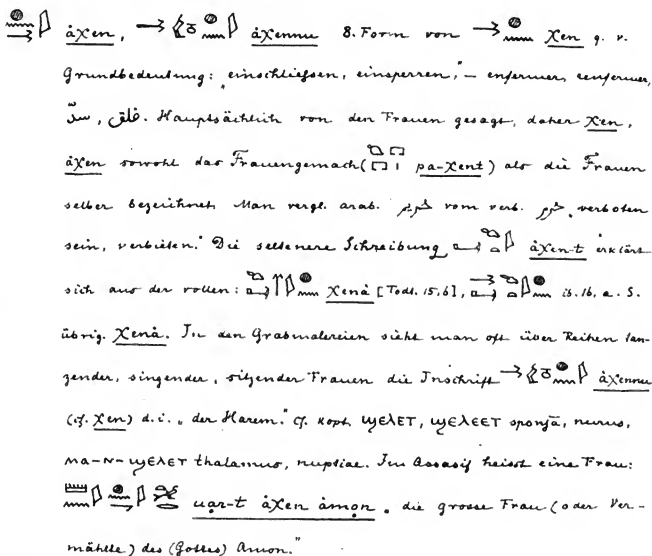 ȧχen, ȧχennu 8. Form von χen q. v.
Grundbedeutung: „einschliessen, einsperren," – enfermer, renfermer,
سدّ, غلق. Hauptsächlich von den Frauen gesagt, daher χen,
ȧχen sowohl das Frauengemach ( pa-χent) als die Frauen
selber bezeichnet. Man vergl. arab. حريم vom verb. حرم „verboten
sein, verbieten." Die seltenere Schreibung ȧχen-t erklärt
sich aus der vollen: χenȧ [Todt. 15,6], ib. 16, a. S.
übrig. χenȧ. In den Grabmalereien sieht man oft über Reihen tan-
zender, singender, sitzender Frauen die Inschrift ȧχennu
(cf. χen) d. i. „der Harem." Cf. kopt. ϣⲉⲗⲉⲧ, ϣⲉⲗⲉⲉⲧ sponsa, nurus,
ⲙⲁ-ⲛ-ϣⲉⲗⲉⲧ thalamus, nuptiae. Im Assasif heisst eine Frau:
uar-t ȧχen ȧmon „die grosse Frau (oder Ver-
mählte) des (Gottes) Amon."